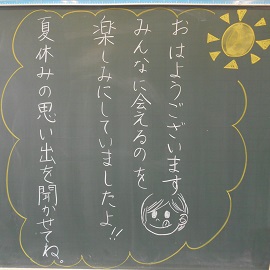 おはようございます
みんなに会えるのを
楽しみにしていましたよ!!
夏休みの思い出を聞かせてね。